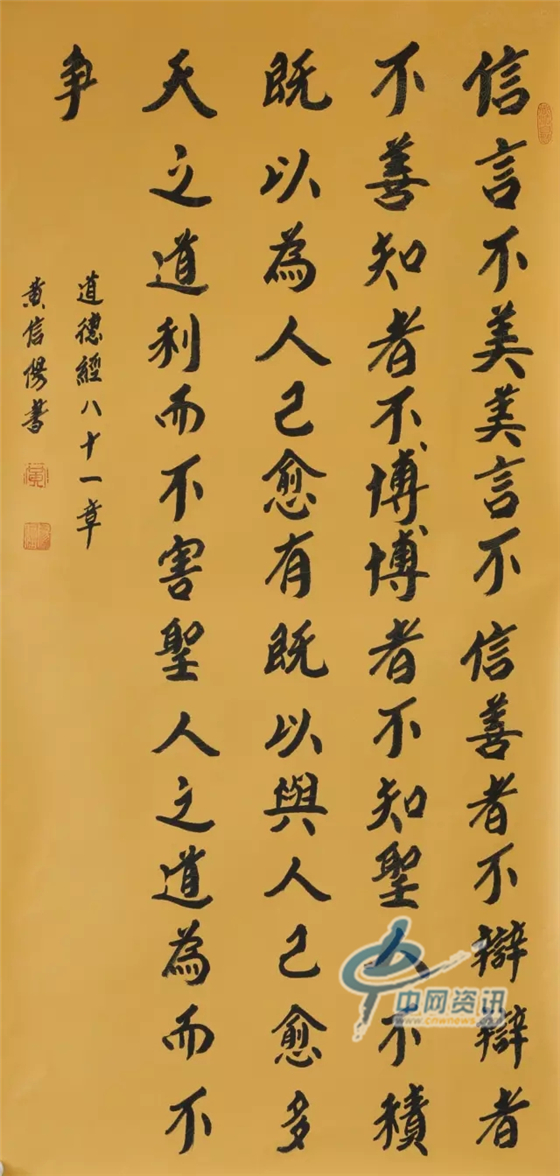 信言不美美言不信善者不辯辯者
不善知者不博博者不知聖人不積
既以為人己愈有既以與人己愈多
天之道利而不害聖人之道為而不
争
道德經八十一章
黄信陽書
中网资讯